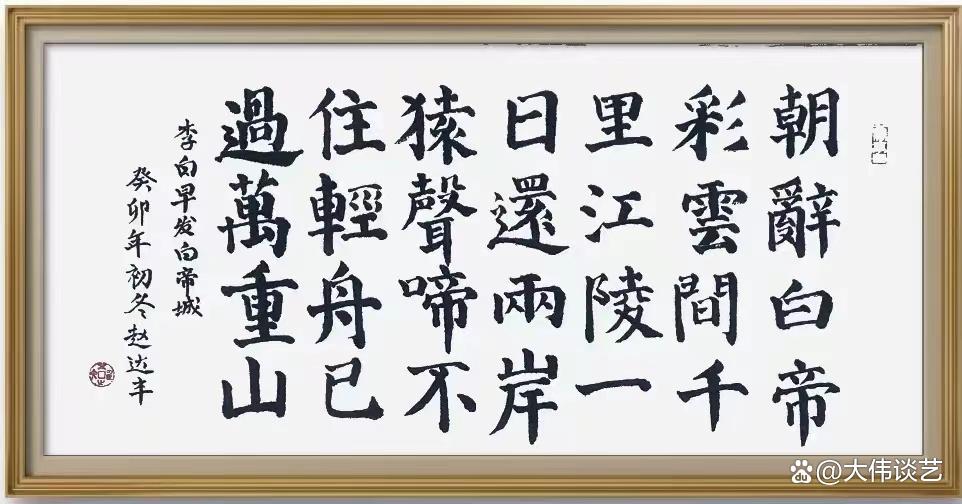 朝辭白帝
彩雲間千
里江陵一
日還兩岸
猿聲啼不
住輕舟已
過萬重山
李白早发白帝城
癸卯年初冬赵达丰
@大伟谈艺